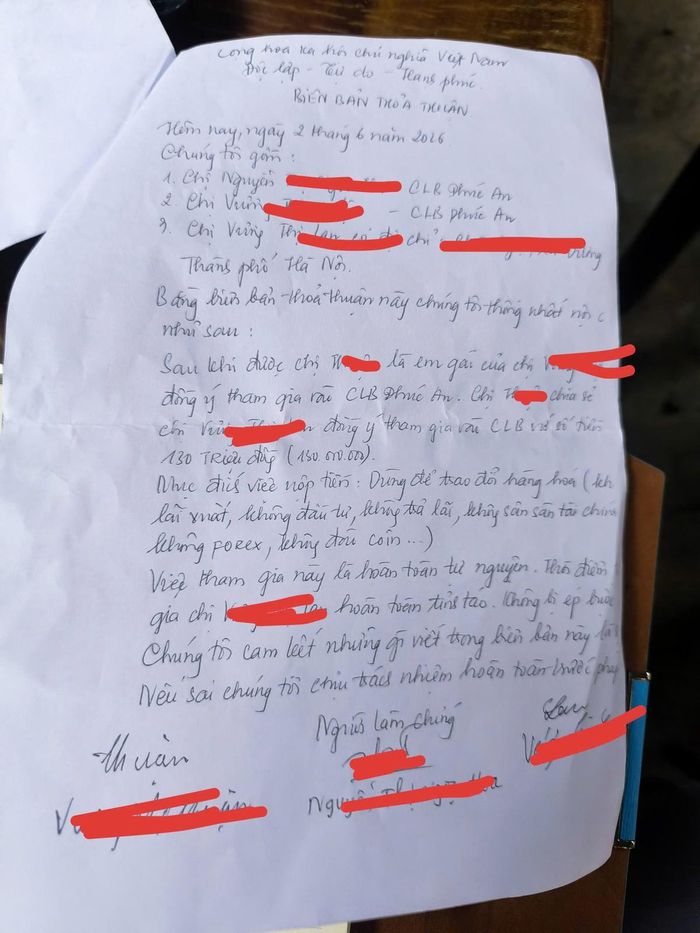 Cộng hòa xã hội chủ nghĩa Việt Nam
Độc lập - Tự do - Hạnh phúc
BIÊN BẢN THỎA THUẬN
Hôm nay, ngày 2 tháng 6 năm 2026
Chúng tôi gồm :
1. Chị Nguyễn CLB Phúc An
2. Chị Vương - CLB Phúc An
3. Chị Vương Thị địa chỉ
Thành phố Hà Nội.
Bằng biên bản thoả thuận này chúng tôi thống nhất nội
như sau :
Sau khi được chị là em gái của chị
đồng ý tham gia vào CLB Phúc An. Chị chia sẻ
chị Vương đồng ý tham gia vào CLB với số tiền
130 Triệu đồng (130.000.000).
Mục đích việc nộp tiền : Dùng để trao đổi hàng hoá (
lãi xuất, không đầu tư, không trả lãi, không sàn sàn tài chính
không forex, không đầu coin ...)
Việc tham gia này là hoàn toàn tự nguyện. Thời điểm
gia chị hoàn toàn tỉnh táo. Không bị ép buộc
Chúng tôi cam kết những gì viết trong biên bản này là
Nếu sai chúng tôi chịu trách nhiệm hoàn toàn trước pháp
Người làm chứng
Thuận